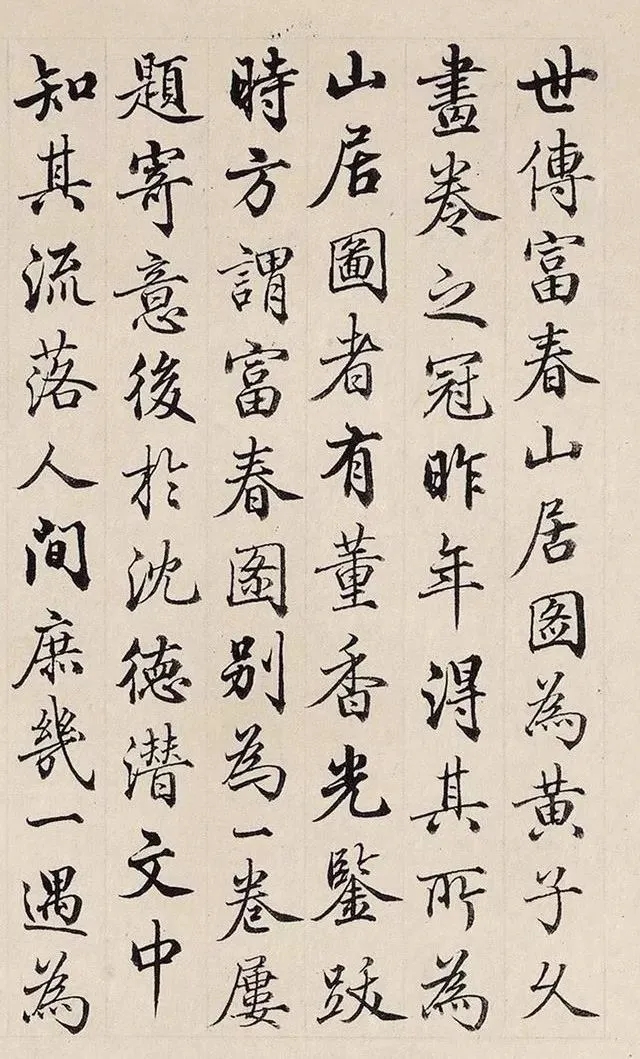 世傳富春山居圖為黄子久
畫卷之冠昨年得其所為
山居圖者有董香光鑒跋
時方謂富春圖别為一卷屢
題寄意後於沈德潜文中
知其流落人間庶幾一遇為